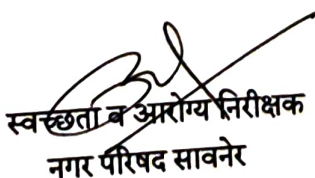 स्वच्छता व आरोग्य निरीक्षक
नगर परिषद सावनेर